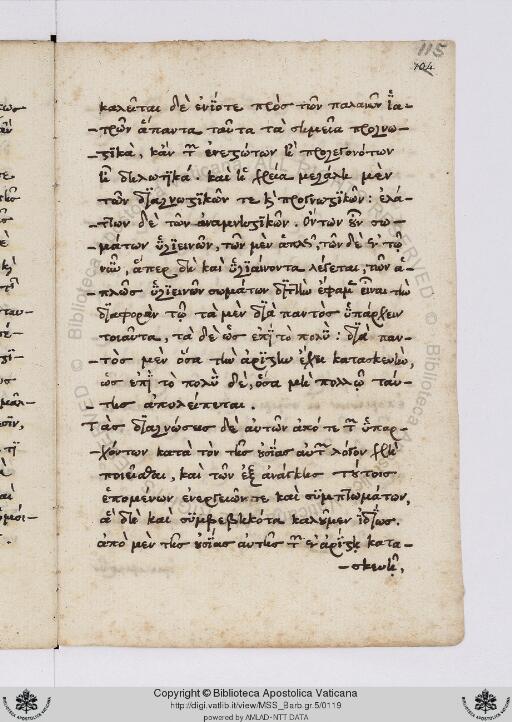 115
104
καλεῖται δὲ ἐνίοτε πρὸς τῶν παλαιῶν ἰα-
-τρῶν ἅπαντα ταῦτα τὰ σημεῖα προγνω-
-στικὰ, κἂν τῶν ἐνεστώτων ᾖ προγεγονότων
ᾖ δηλωτικά. καὶ ἡ χρεία μεγάλη μὲν
τῶν διαγνωστικῶν τε καὶ προγνωστικῶν: ἐλά-
-ττων δὲ τῶν ἀναμνηστικῶν. ὄντων οὖν σω-
-μάτων ὑγιεινῶν, τῶν μὲν ἁπλῶς, τῶν δὲ ἐν τῷ
νῦν, ἅπερ δὴ καὶ ὑγιαίνοντα λέγεται, τῶν ἁ-
-πλῶς ὑγιεινῶν σωμάτων διττὴν ἔφαμεν εἶναι τὴν
διαφορὰν τῷ τὰ μὲν διὰ παντὸς ὑπάρχειν
τοιαῦτα, τὰ δὲ ὡς ἐπὶ τὸ πολὺ: διὰ παν-
-τὸς μὲν ὅσα τὴν ἀρίστην ἔχει κατασκευὴν,
ὡς ἐπὶ τὸ πολὺ δὲ, ὅσα μὴ πολλῷ ταύ-
-της ἀπολείπεται.
Τὰς διαγνώσεις δὲ αὐτῶν ἀπό τε τῶν ὑπαρ-
-χόντων κατὰ τὸν τῆς οὐσίας αὐτῶν λόγον χρὴ
ποιεῖσθαι, καὶ τῶν ἐξ ἀνάγκης τούτοις
ἑπομένων ἐνεργειῶν τε καὶ συμπτωμάτων,
ἃ δὴ καὶ συμβεβηκότα καλοῦμεν ἰδίως.
ἀπὸ μὲν τῆς οὐσίας αὐτῆς τῶν ἐν ἀρίστῃ κατα-
-σκευῇ,
Copyright © Biblioteca Apostolica Vaticana
http://digi.vatlib.it/view/MSS_Barb.gr.5/0119
powered by AMLAD-NTT DATA